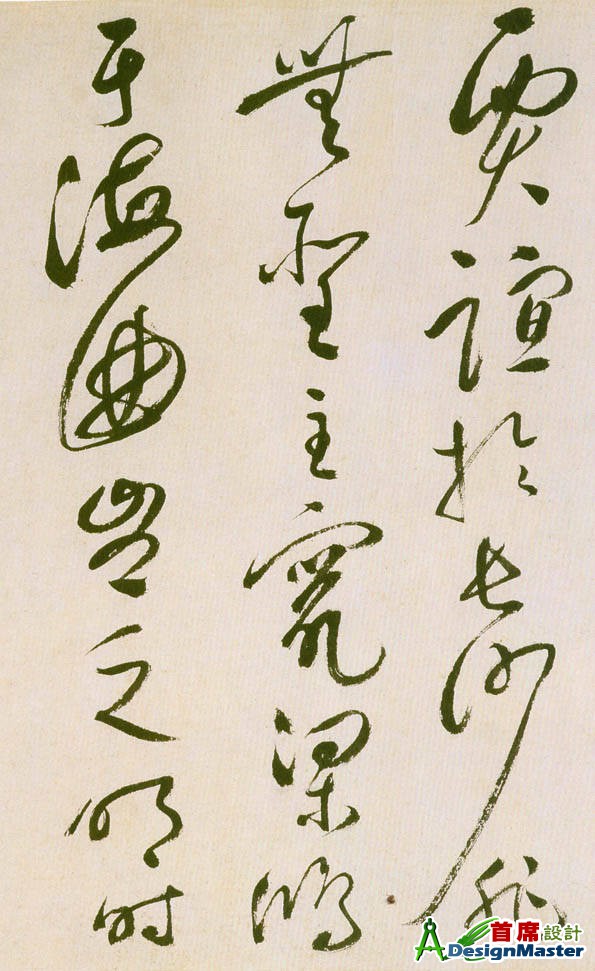 賈誼於長沙非
無聖主竄梁鴻
于海曲豈乏明時
首席設計
DesignMaster